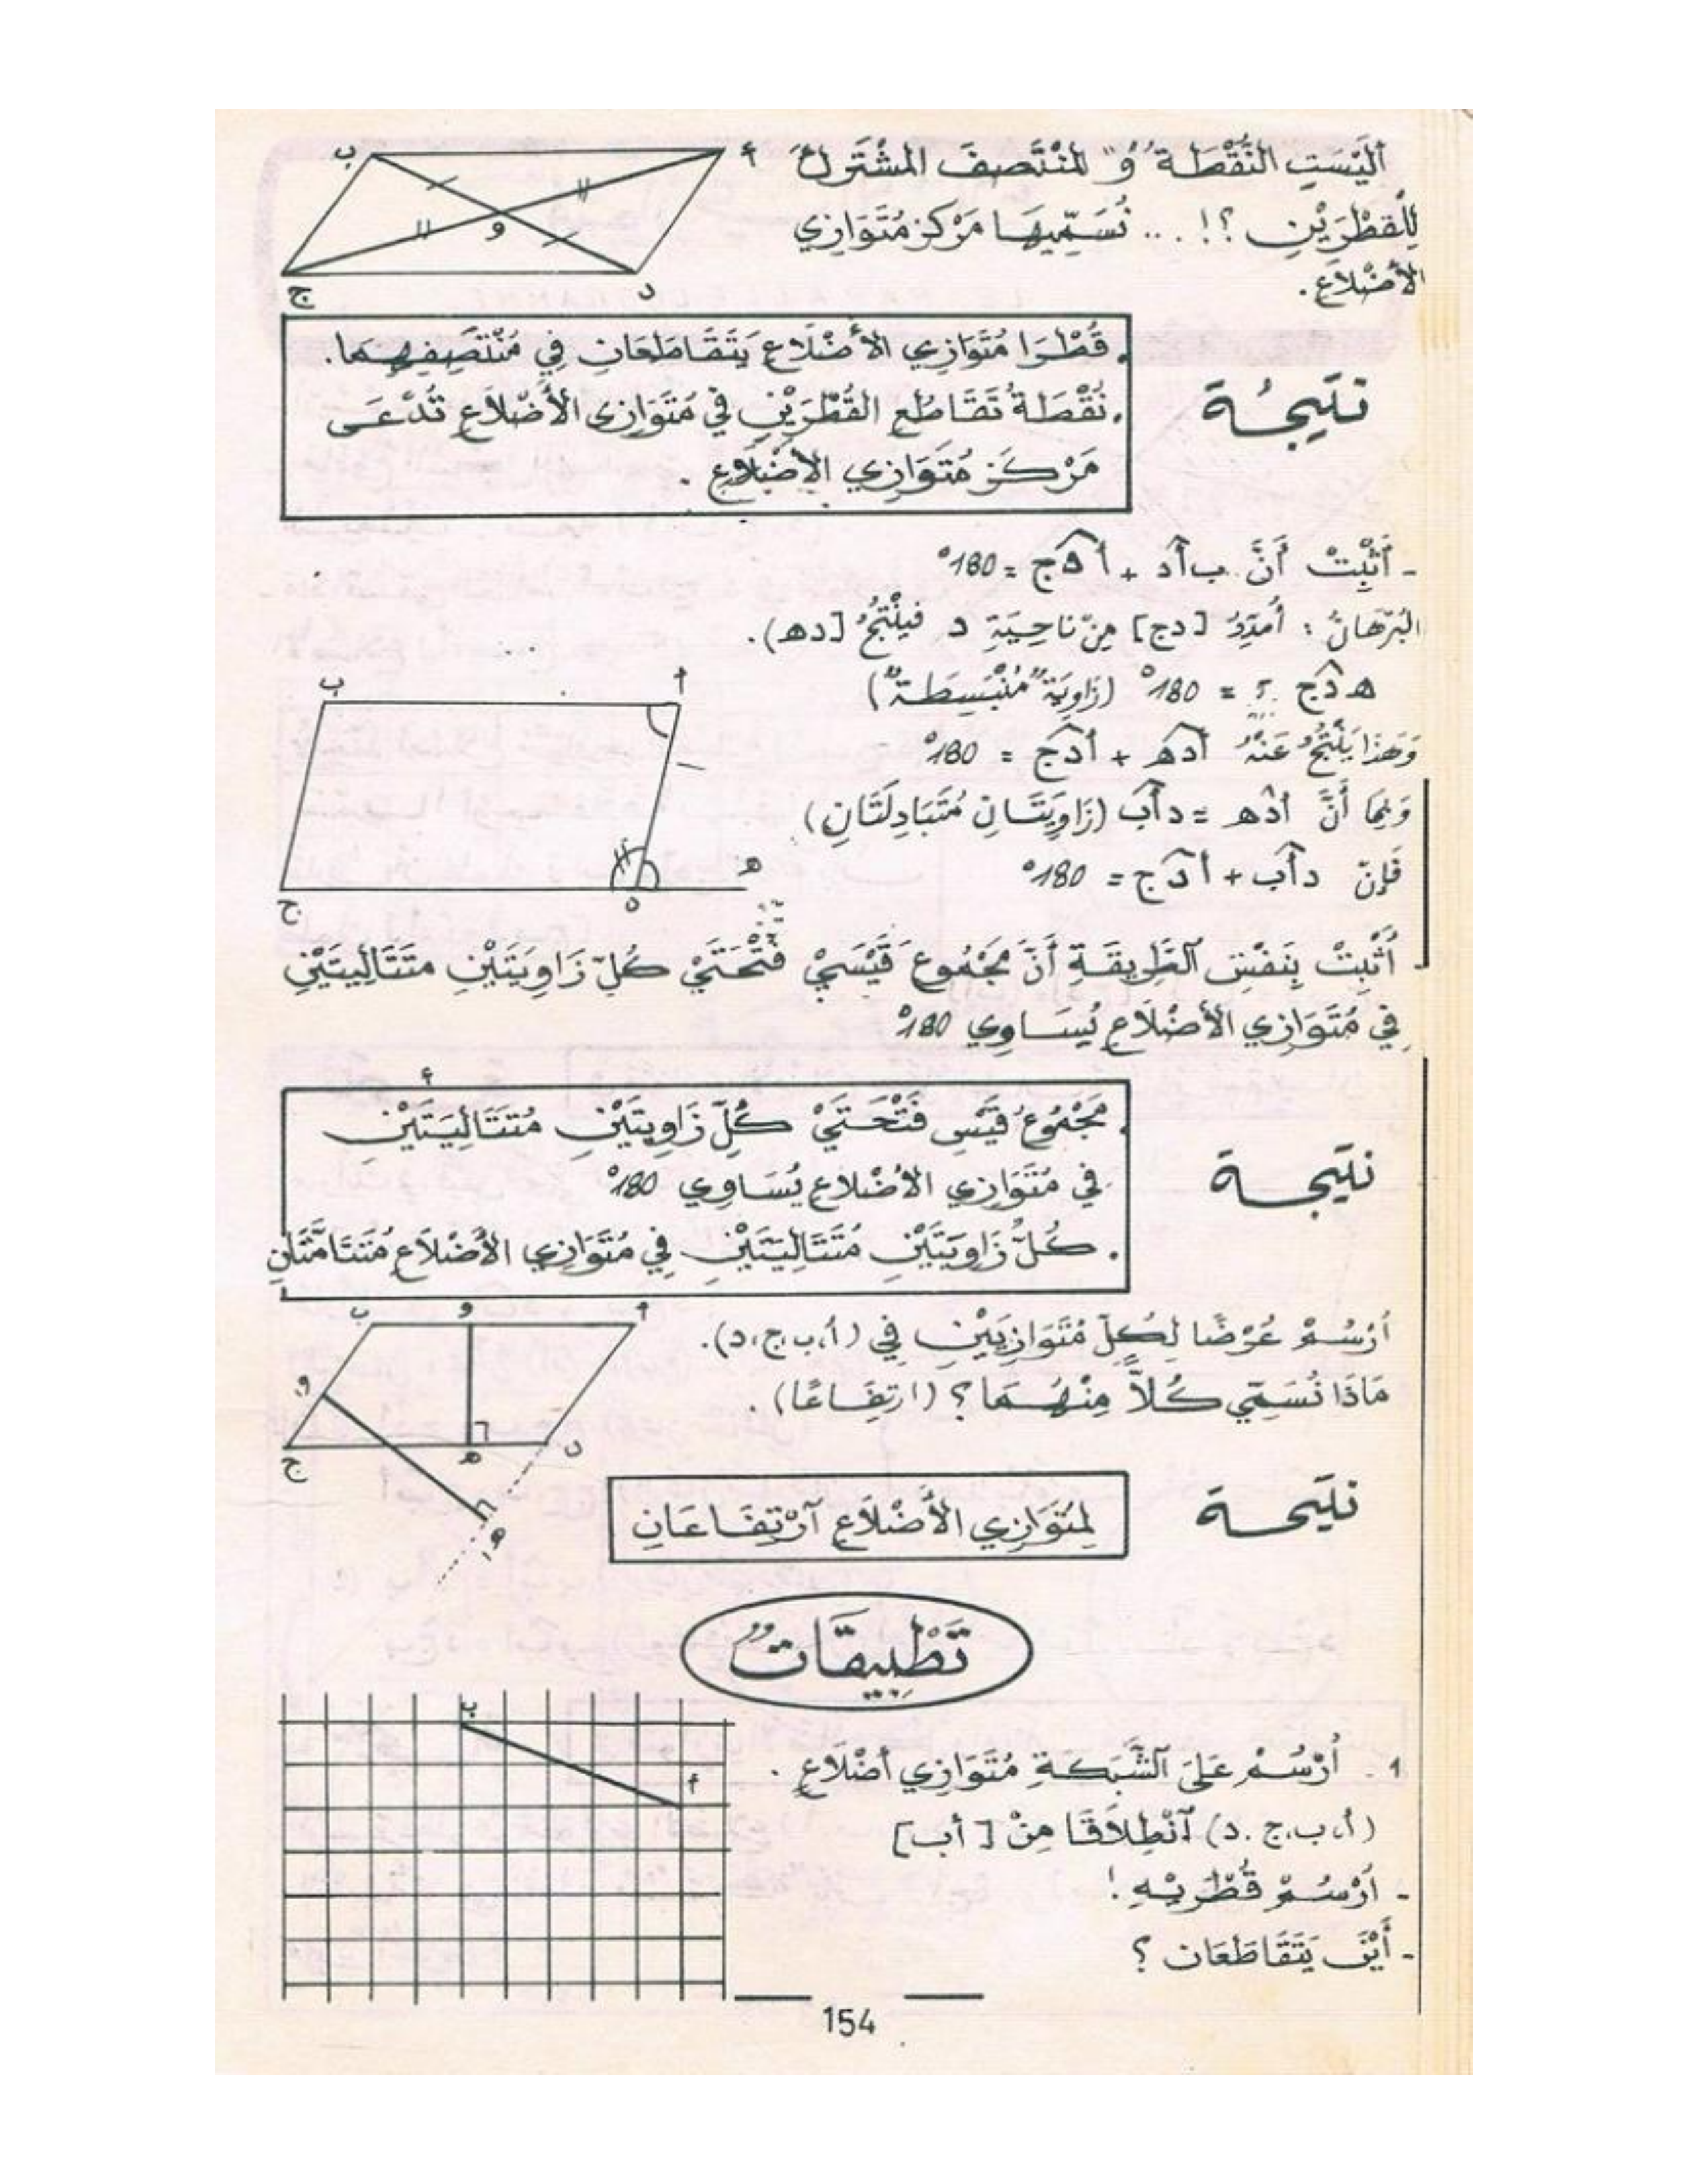 أَلَيْسَتِ النُّقْطَة "وُ" المُنْتَصِفَ المشْتَرِكَ
لِلْقطْرَيْنِ ؟! ... نُسَمِّيهَا مَرْكز مُتَوَازِي
الأضْلاَعِ .
ب أ
و
ج د
. قُطْرَا مُتَوَازِي الأَضْلاَعِ يَتَقَاطَعَانِ فِي مُنْتَصِفِهِمَا.
. نُقْطَةُ تَقَاطُعِ القُطْرَيْنِ فِي مُتَوَازِي الأَضْلاَعِ تُدْعَى
مَرْكَزَ مُتَوَازِي الأضْلاَعِ .
نَتِيجَة
- أَثْبِتْ أَنَّ بأد + أدج = 180°
البُرْهَانُ : أُمَدِّدُ [دج] مِنْ نَاحِيَةِ د فَيَنْتُجُ [ده).
هدج ؟ = 180° (زَاوِيَة "مُنْبَسِطَة")
وَهَذَا يَنْتُجُ عَنْهُ أده + أدج = 180°
وَبِمَا أَنَّ أده = دأب (زَاوِيَتَانِ مُتَبَادِلَتَانِ)
فَإِنّ دأب + أدج = 180°
ب أ
ج د ه
- أَثْبِتْ بِنَفْسِ الطَّرِيقَةِ أَنَّ مَجْمُوعَ قَيْسَيْ فَتْحَتَيْ كُلّ زَاوِيَتَيْنِ متَتَالِيَتَيْنِ
فِي مُتَوَازِي الأَضْلاَعِ يُسَاوِي 180°
أ
. مَجْمُوعُ قَيْسِ فَتْحَتَيْ كُلِّ زَاوِيتَيْنِ مُتَتَالِيَتَيْنِ
فِي مُتَوَازِي الأضْلاعِ يُسَاوِي 180°
. كُلُّ زَاوِيَتَيْنِ مُتَتَالِيَتَيْنِ فِي مُتَوَازِي الأَضْلاَعِ مُتَتَامَّتَانِ
نتيجة
أُرْسُمْ عُرْضًا لِكُلِّ مُتَوَازِيَيْنِ فِي (أ،ب،ج،د).
مَاذَا نُسَمِّي كُلاًّ مِنْهُمَا ؟ (ارتِفَاعًا) .
ب و أ
و'
ج ه د
ه'
نتيجة
لِمُتَوَازِي الأَضْلاَعِ آرْتِفَاعَانِ
تَطْبِيقَاتٌ
1 . أُرْسُمْ عَلَى الشَّبَكَةِ مُتَوَازِي أضْلاَعٍ .
(أ،ب،ج.د) آنْطِلاَقًا مِنْ [أب]
- أرْسُمْ قُطْرَيْهِ !
- أَيْنَ يَتَقَاطَعَان ؟
ب
أ
154